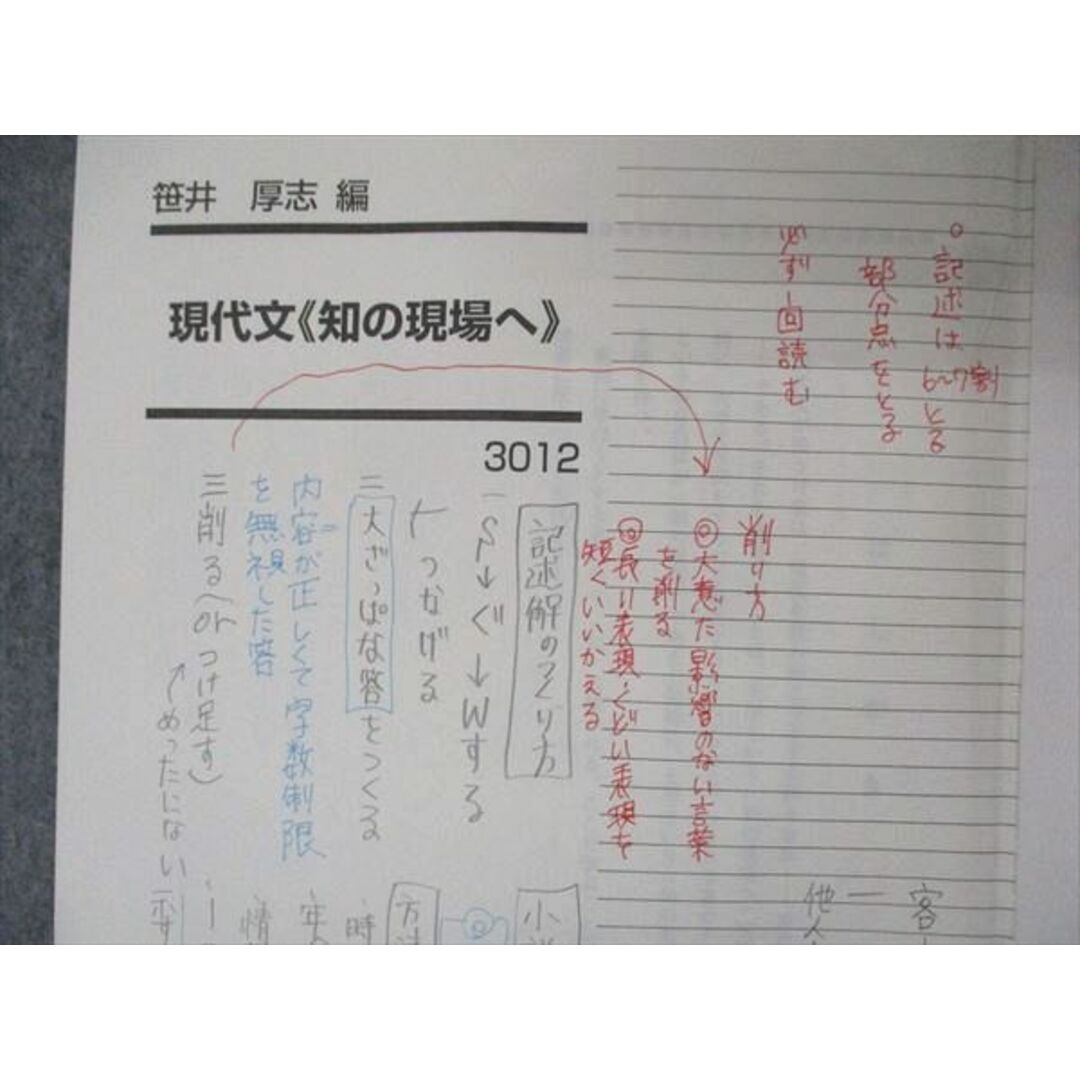 笹井 厚志 編
現代文《知の現場へ》
3012
○記述は6〜7割とる
部分点をとる
必ず一回読む
削り方
◎大意に影響のない言葉
を削る
◎長い表現・くどい表現を
短くいいかえる
記述解のつくり方
一 S↓ぐ↓Wする
つなげる
二 大ざっぱな答をつくる
内容が正しくて字数制限
を無視した答
三 削る(or つけ足す)
めったにない
客
他人
小説
方法
時
情